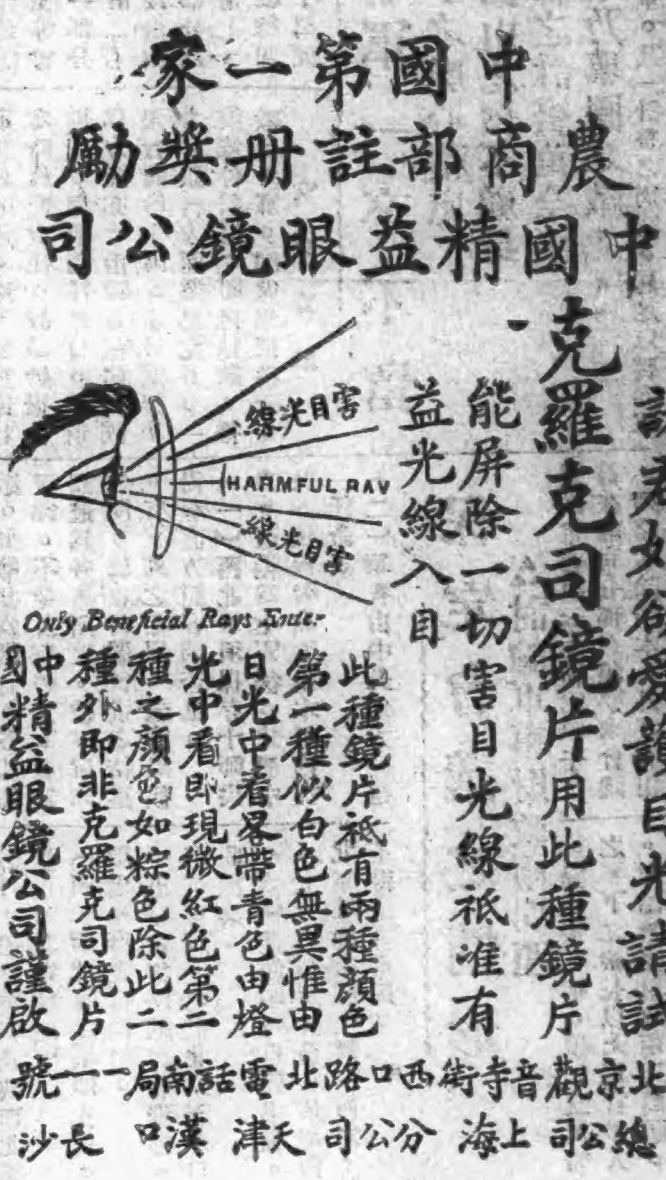 中國第一家
農商部註册獎勵
中國精益眼鏡公司
諸君如欲愛護目光請試
克羅克司鏡片用此種鏡片
能屏除一切害目光線祇准有
益光線入目
害目光線
HARMFUL RAY
害目光線
Only Beneficial Rays Enter
此種鏡片祇有兩種顏色
第一種似白色無異惟由
日光中看畧帶青色由燈
光中看即現微紅色第二
種之顏色如粽色除此二
種外即非克羅克司鏡片
中國精益眼鏡公司謹啟
北京觀音寺街西口路北電話南局一一一號
總公司 上海 分公司 天津 漢口 長沙